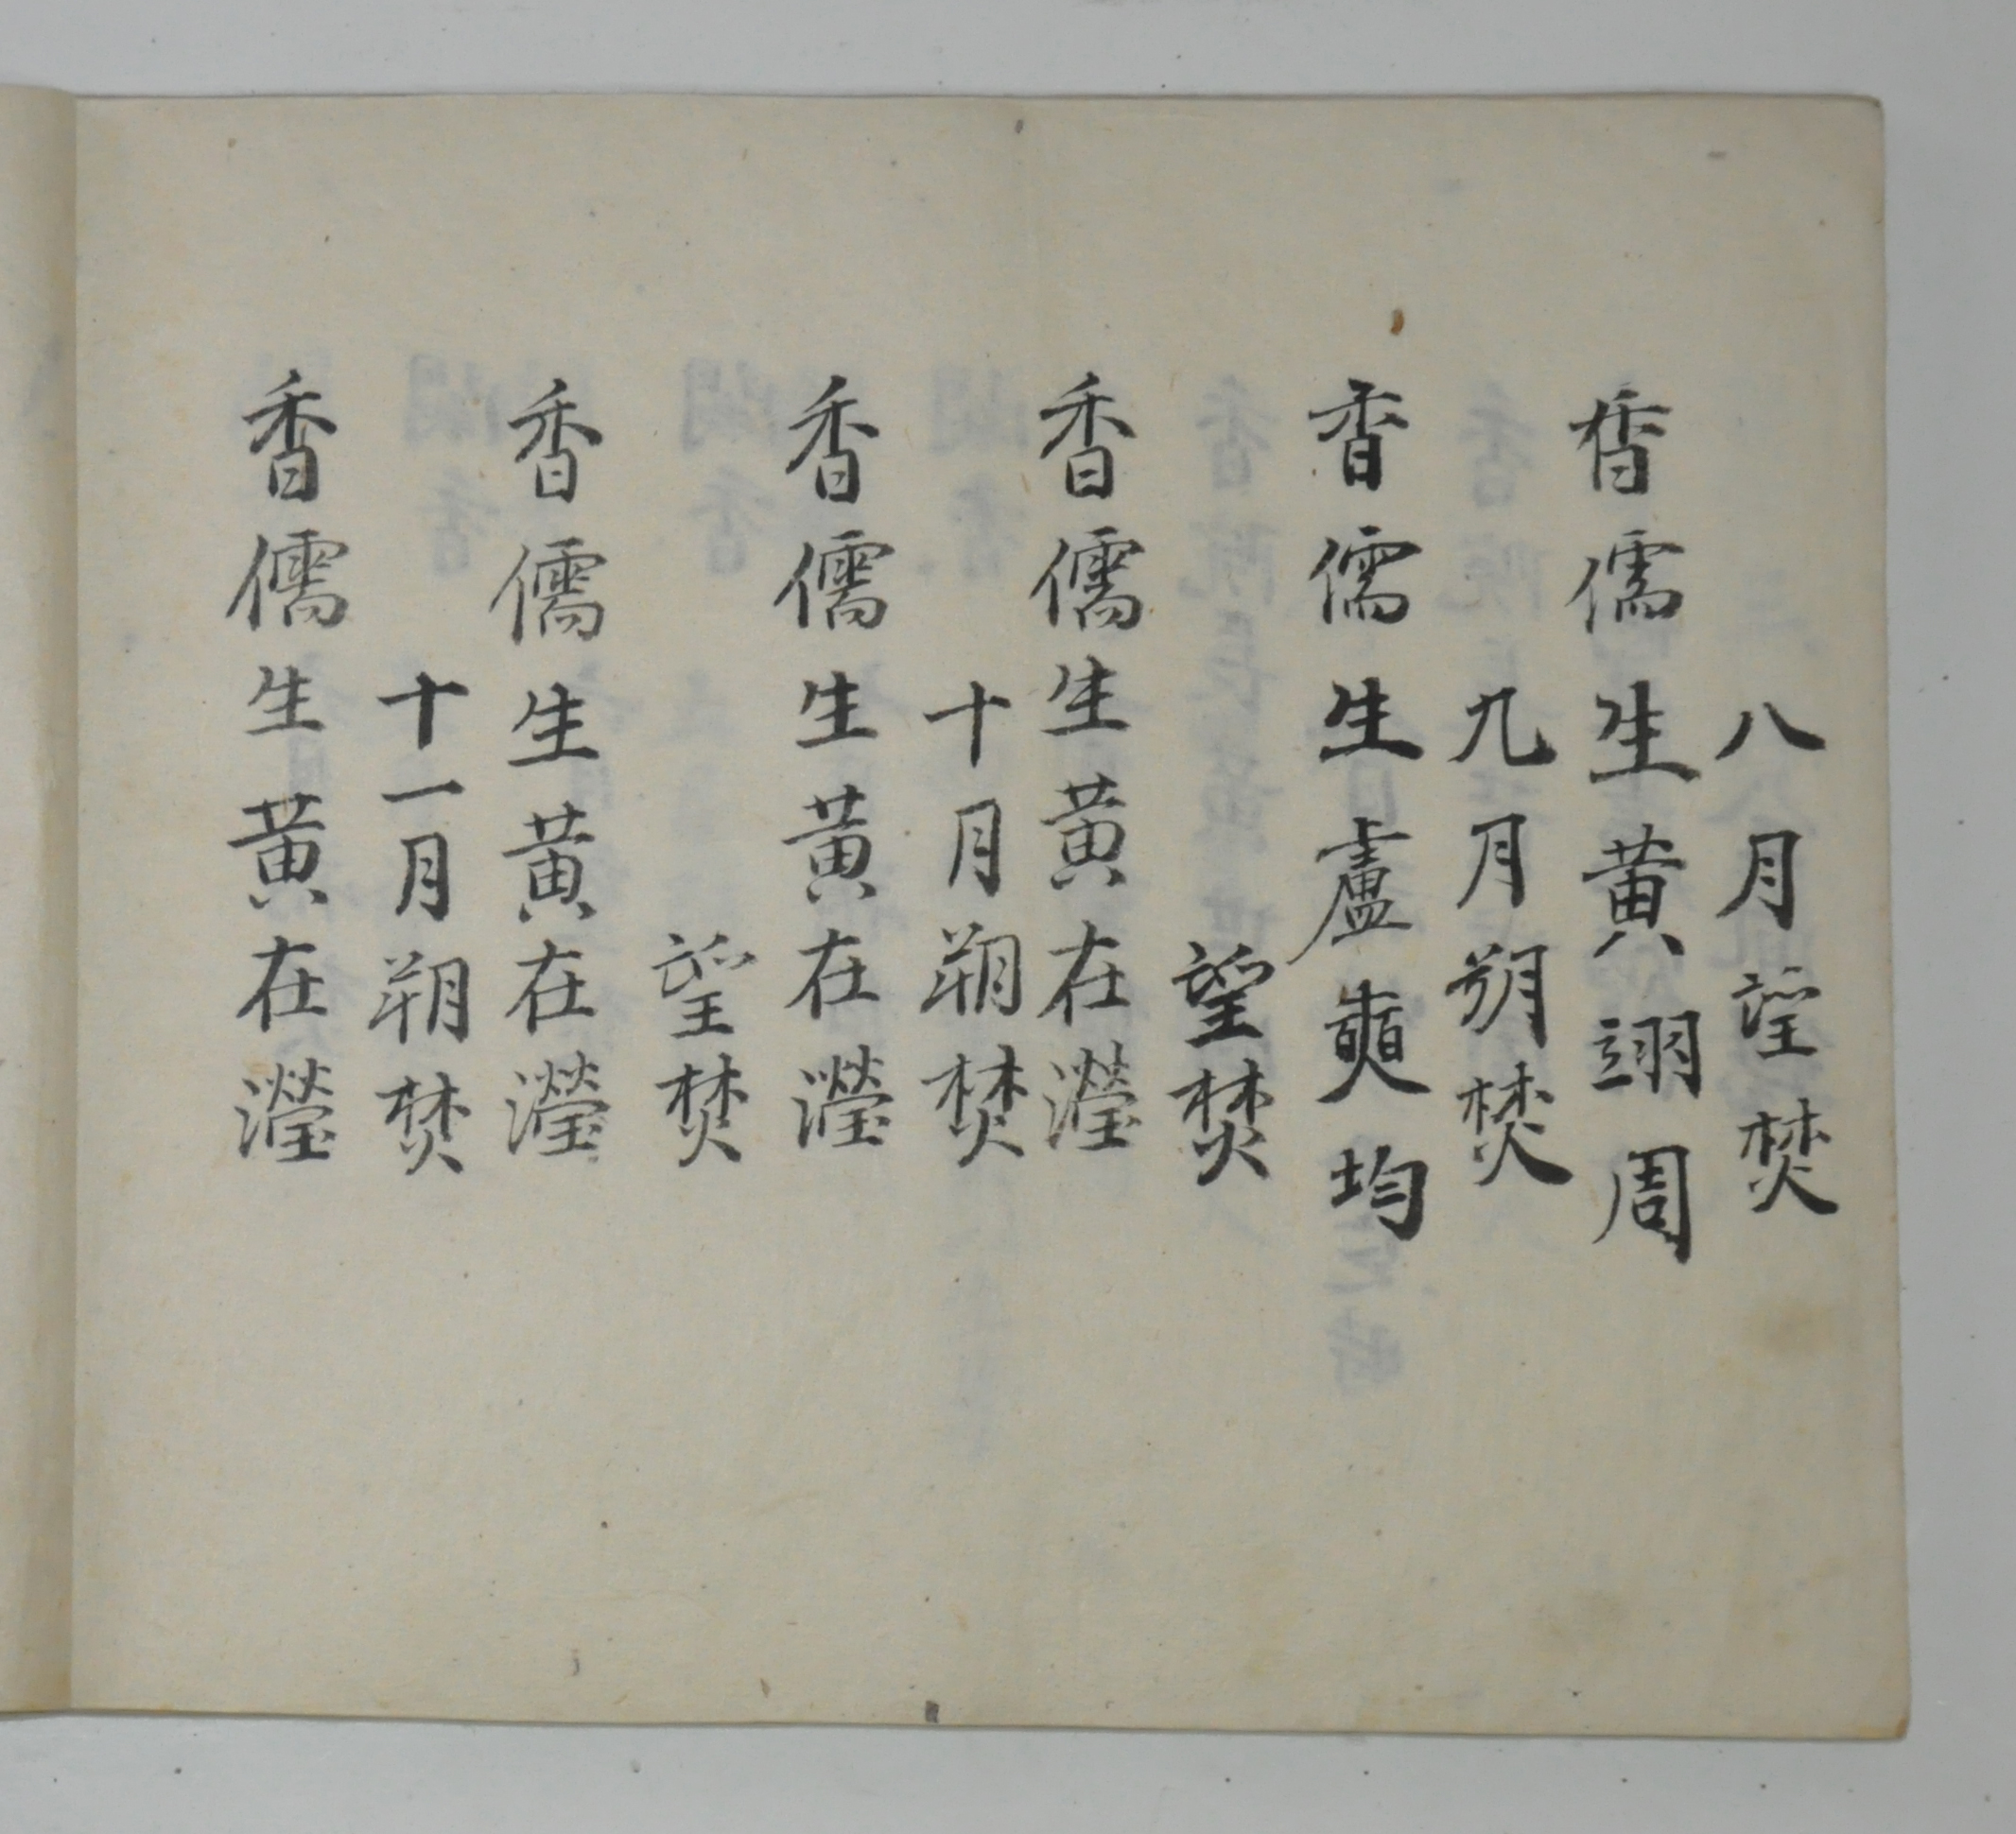 八月望焚
香儒生黃翊周
九月朔焚
香儒生盧奭均
望焚
香儒生黃在瀅
十月朔焚
香儒生黃在瀅
望焚
香儒生黃在瀅
十一月朔焚
香儒生黃在瀅